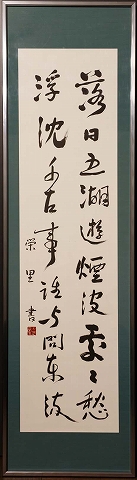 落日五湖遊煙波處々愁
浮沈千古事誰与問東流
栄里書